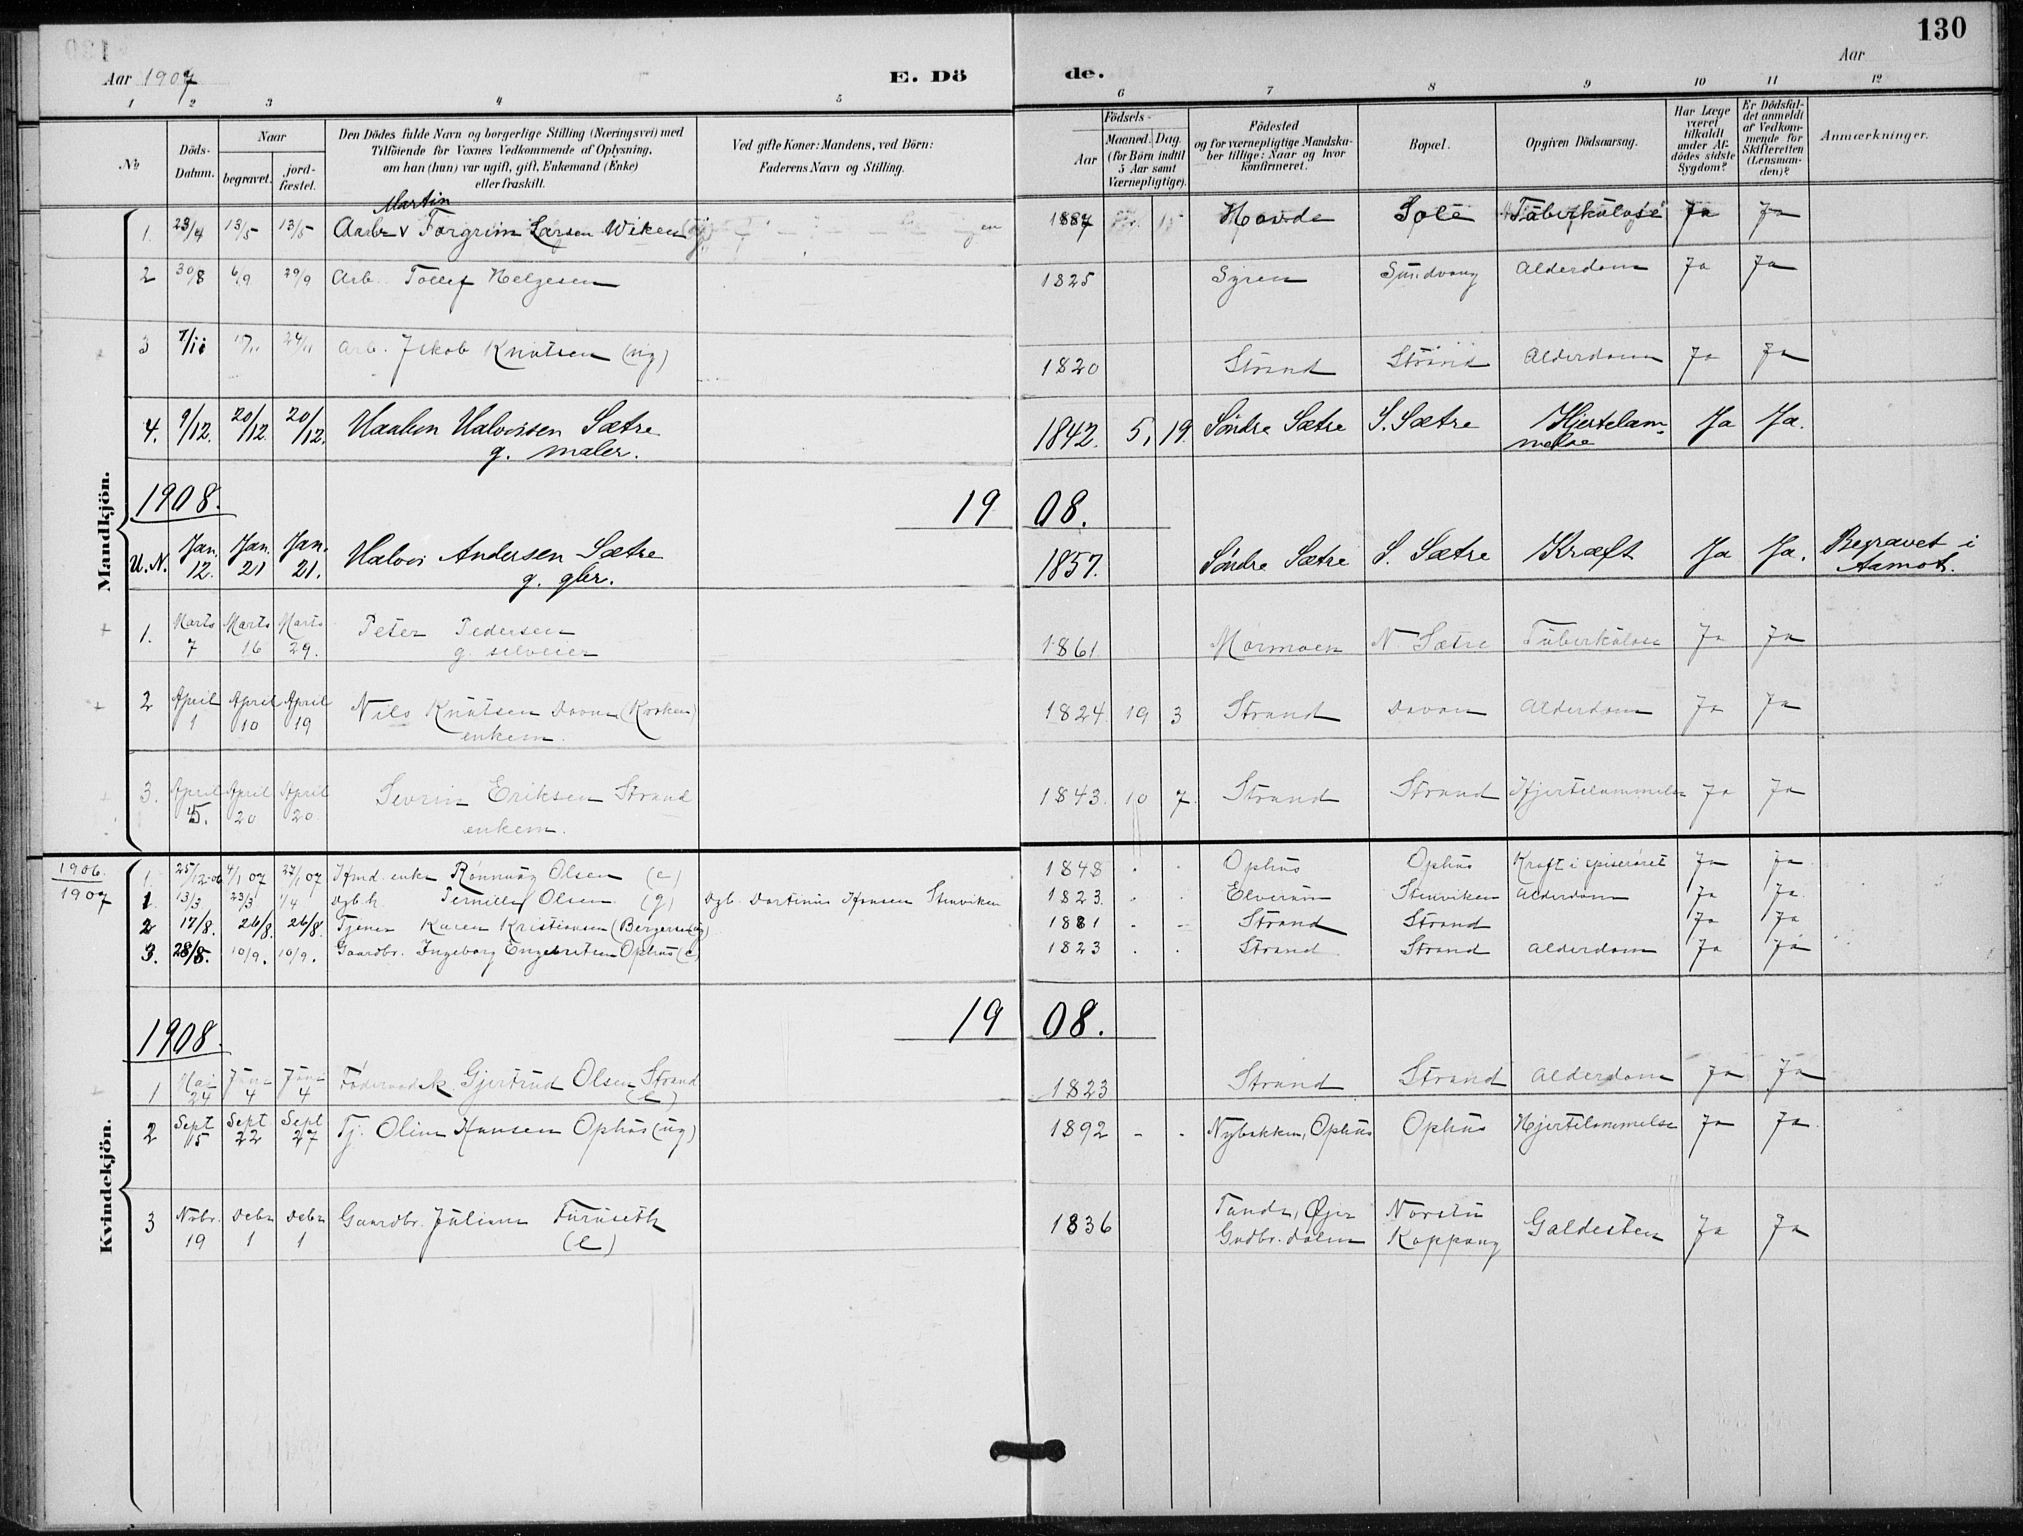 130
Aar 1907
E. Dö de.
Aar
1 2 3 4 5 6 7 8 9 10 11 12
No
Döds-Datum.
Naar
begravet.
jord-fæstet.
Den Dödes fulde Navn og borgerlige Stilling (Næringsvei) med
Tilföiende for Voxnes Vedkommende af Oplysning,
om han (hun) var ugift, gift, Enkemand (Enke)
eller fraskilt.
Ved gifte Koner: Mandens, ved Börn:
Faderens Navn og Stilling.
Födsels-
Aar
Maaned. Dag.
(for Börn indtil
5 Aar samt
Værnepligtige).
Födested
og for værnepligtige Mandska-
ber tillige: Naar og hvor
konfirmeret.
Bopæl.
Opgiven Dödsaarsag.
Har Læge
været
tilkaldt
under Af-
dödes sidste
Sygdom?
Er Dödsfal-
det anmeldt
af Vedkom-
mende for
Skifteretten
(Lensman-
den)?
Anmærkninger.
Mandkjön.
Martin
1. 23/4 13/5 13/5 Torgrim Larsen Wiken 1887 Hovde Sole Tuberkulose Ja Ja
2 30/8 6/9 29/9 Arb. Tollef Helgesen 1825 Syren Sundvang Alderdom Ja Ja
3 7/11 17/11 24/11 Arb. Jakob Knutsen (ug) 1820 Strand Strand Alderdom Ja Ja
4. 9/12. 20/12. 20/12. Haaken Halvorsen Sætre 1842. 5, 19. Søndre Sætre S. Sætre Hjertelam- Ja Ja.
g. maler. melse
1908. 1908.
U.N. Jan. 12. Jan. 21 Jan. 21. Halvor Andersen Sætre 1857. Søndre Sætre S. Sætre Kræft Ja Ja. Begravet i
g. gbr. Aamot.
1. Marts 7 Marts 16 Marts 29. Peter Pedersen 1861. Mormoen N. Sætre Tuberkulose Ja Ja
g. selveier
2 April 1 April 10 April 19 Nils Knutsen Dovan (Kroken) 1824. 19 3 Strand Dovan Alderdom Ja Ja
enkem.
3. April 15. April 20 April 20 Severin Eriksen Strand 1843. 10 7. Strand Strand Hjertelammelse Ja Ja
enkem.
Kvindekjön.
1906. 1. 25/12-06 4/1 07 27/1 07 Hmd. enke Rønnaug Olsen (e) 1848 Ophus Ophus Kræft i spiserøret Ja Ja
1907 1. 13/3 23/3 1/4 Dgb.k. Pernille Olsen (g) Dgb. Dortinus Hansen Stenviken 1823. Elverum Stenviken Alderdom Ja Ja
2 17/8. 26/8. 26/8. Tjener Karen Kristiansen (Bergersen) 1881 Strand Strand Ja Ja
3. 28/8. 10/9. 10/9. Gaardbr. Ingeborg Engebretsen Ophus (e) 1823 Strand Strand Alderdom Ja Ja
1908. 1908.
1 Mai 24 Juni 4 Juni 4 Føderaadsk. Gjertrud Olsen Strand 1823 Strand Strand Alderdom Ja Ja
(e)
2 Sept 15 Sept 22 Sept 27 Tj. Oline Hansen Ophus (ug) 1892 - - Nybakken, Ophus Ophus Hjertelammelse Ja Ja
3 Nvbr. 19 Debr 1 Debr 1 Gaardbr. Juliane Furuseth 1836 Tande, Øyer Norstu Galdesten Ja Ja
(e) Gudbr. dalen Koppang